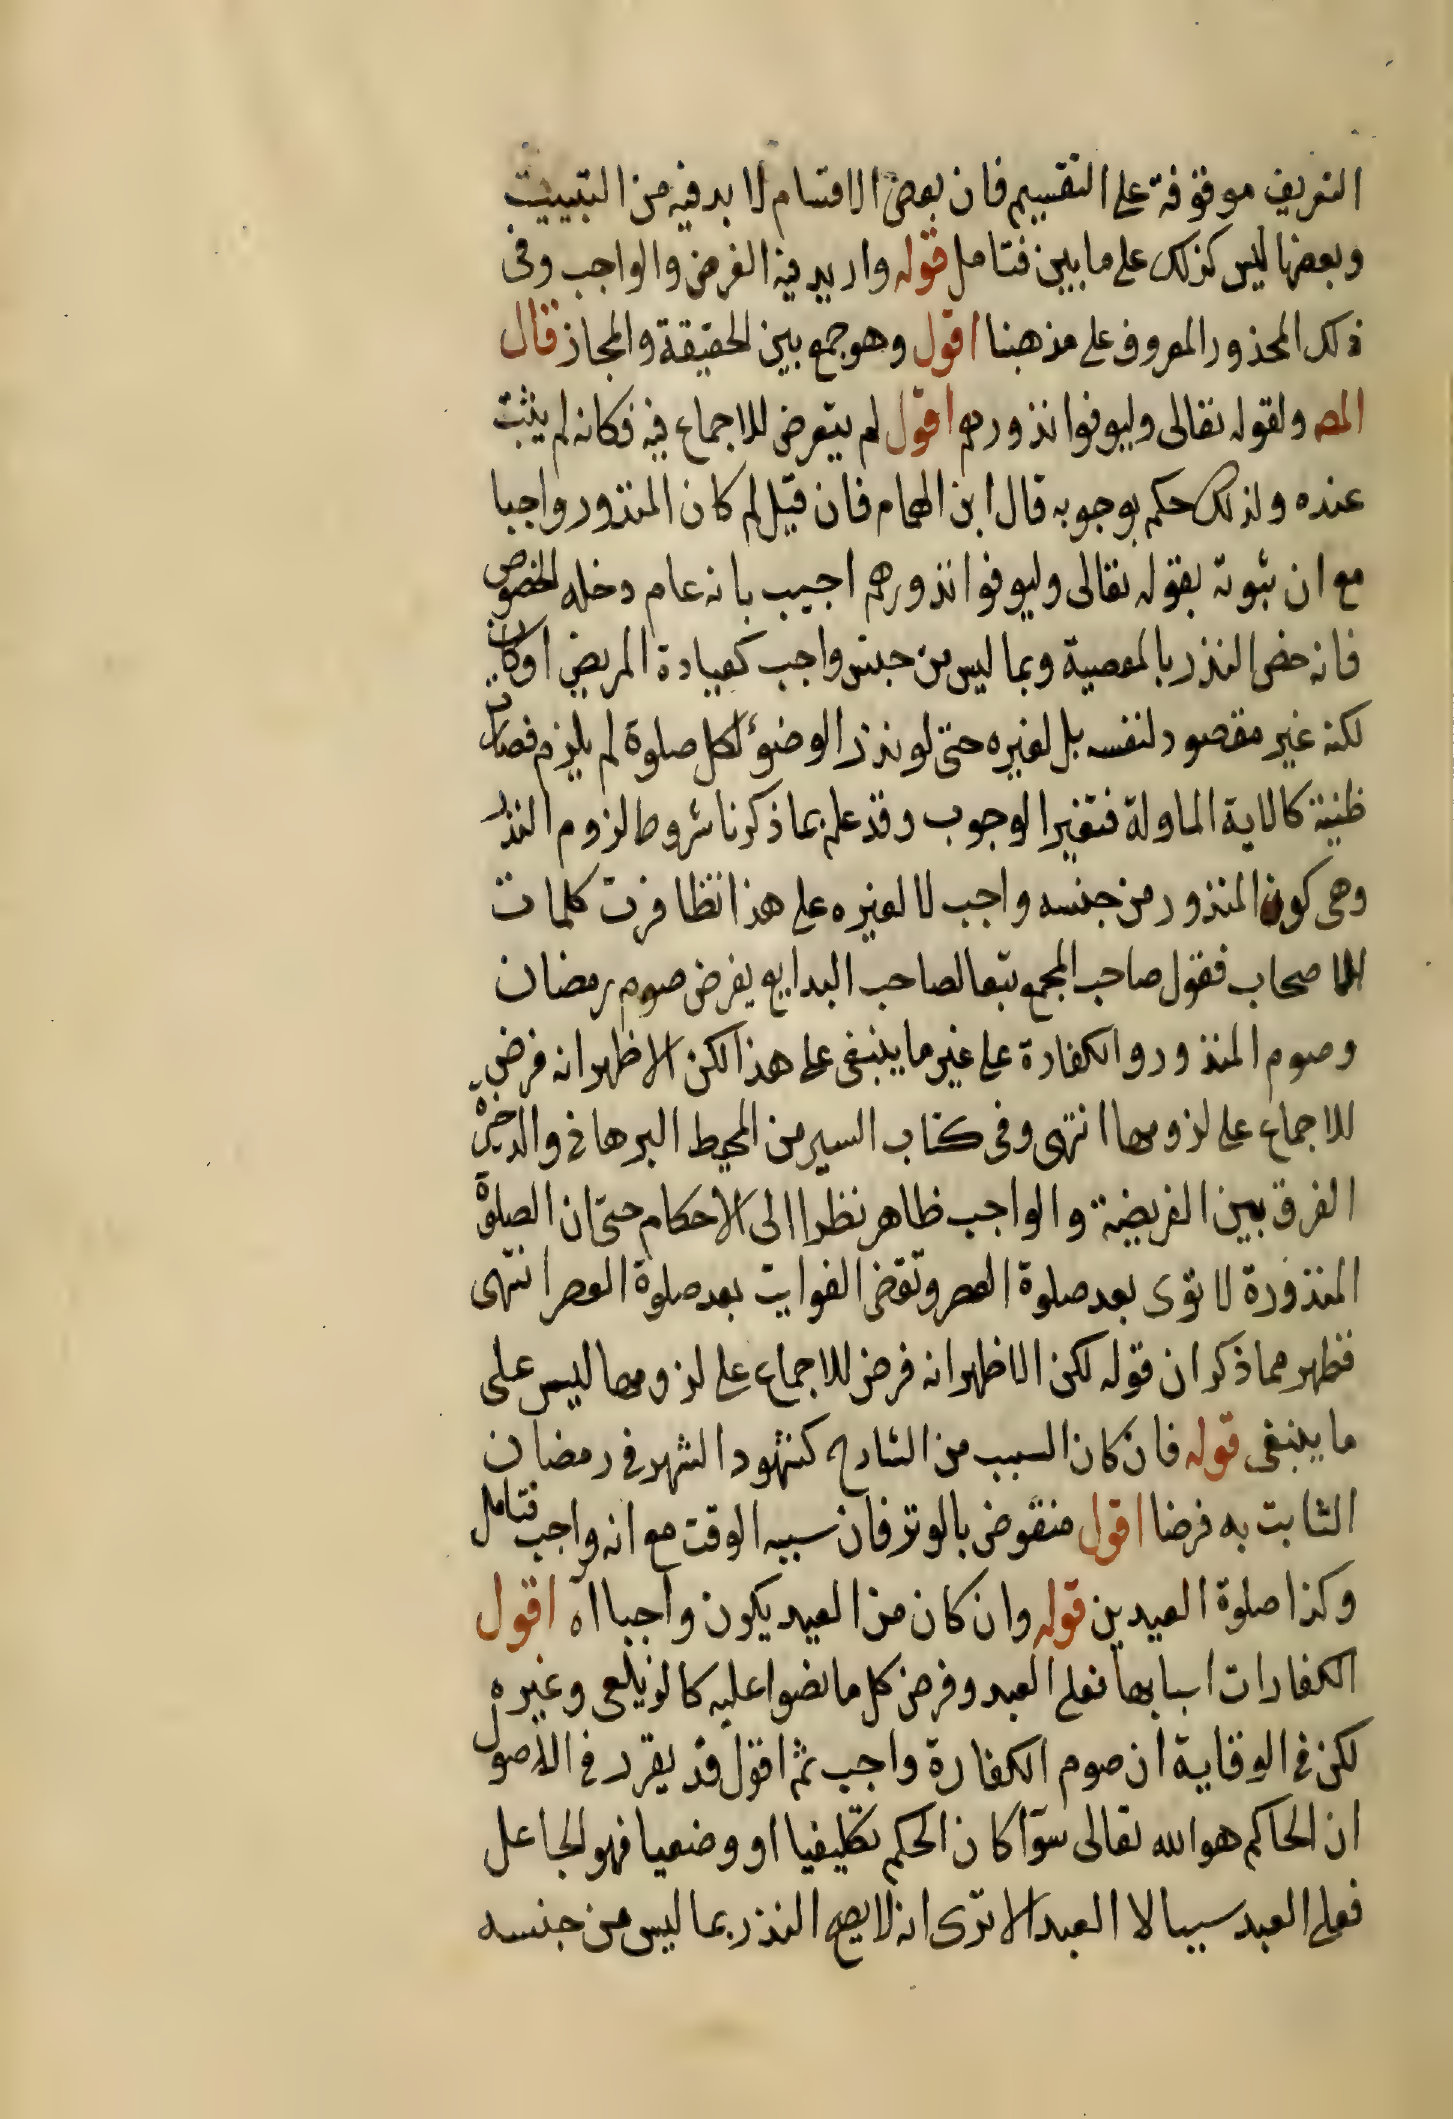 التعريف موقوفة على التقسيم فان بعض الاقسام لا بد فيه من التبييت
وبعضها ليس كذلك على ما بين فتامل قوله واريد فيه الفرض والواجب وفى
ذلك المحذور المعروف على مذهبنا اقول وهو جمع بين الحقيقة والمجاز قال
المصه ولقوله تعالى وليوفوا نذورهم اقول لم يتعرض للاجماع فيه فكانه لم يثبت
عنده ولذلك حكم بوجوبه قال ابن الهمام فان قيل لم كان المنذور واجبا
مع ان ثبوته بقوله تعالى وليوفوا نذورهم اجيب بانه عام دخله الخصوص
فانه خص النذر بالمعصية وبما ليس من جنس واجب كعيادة المريض او كان
لكنه غير مقصود لنفسه بل لغيره حتى لو نذر الوضوء لكل صلوة لم يلزم فصارت
ظنية كالاية الماولة فتغير الوجوب وقد علم بما ذكرنا شروط لزوم النذر
وهى كون المنذور من جنسه واجب لا لغيره على هذا تظافرت كلمات
الاصحاب فقول صاحب المجمع تبعا لصاحب البدايع يفرض صوم رمضان
وصوم المنذور والكفارة على غير ما ينبغى على هذا لكن الاظهر انه فرض
للاجماع على لزومها انتهى وفى كتاب السير من المحيط البرهانى والذخيرة
الفرق بين الفريضة والواجب ظاهر نظرا الى الاحكام حتى ان الصلوة
المنذورة لا تؤدى بعد صلوة العصر وتقضى الفوايت بعد صلوة العصر انتهى
فظهر مما ذكر ان قوله لكن الاظهر انه فرض للاجماع على لزومها ليس على
ما ينبغى قوله فان كان السبب من الشارع كشهود الشهر فى رمضان
الثابت به فرضا اقول منقوض بالوتر فان سببه الوقت مع انه واجب فتامل
وكذا صلوة العيدين قوله وان كان من العبد يكون واجبا اه اقول
الكفارات اسبابها فعل العبد وفرض كل ما نصوا عليه كالزيلعى وغيره
لكن فى الوقاية ان صوم الكفارة واجب ثم اقول قد يقرر فى الاصول
ان الحاكم هو الله تعالى سوآ كان الحكم تكليفيا او وضعيا فهو الجاعل
فعل العبد سببا لا العبد الا ترى انه لا يصح النذر بما ليس من جنسه